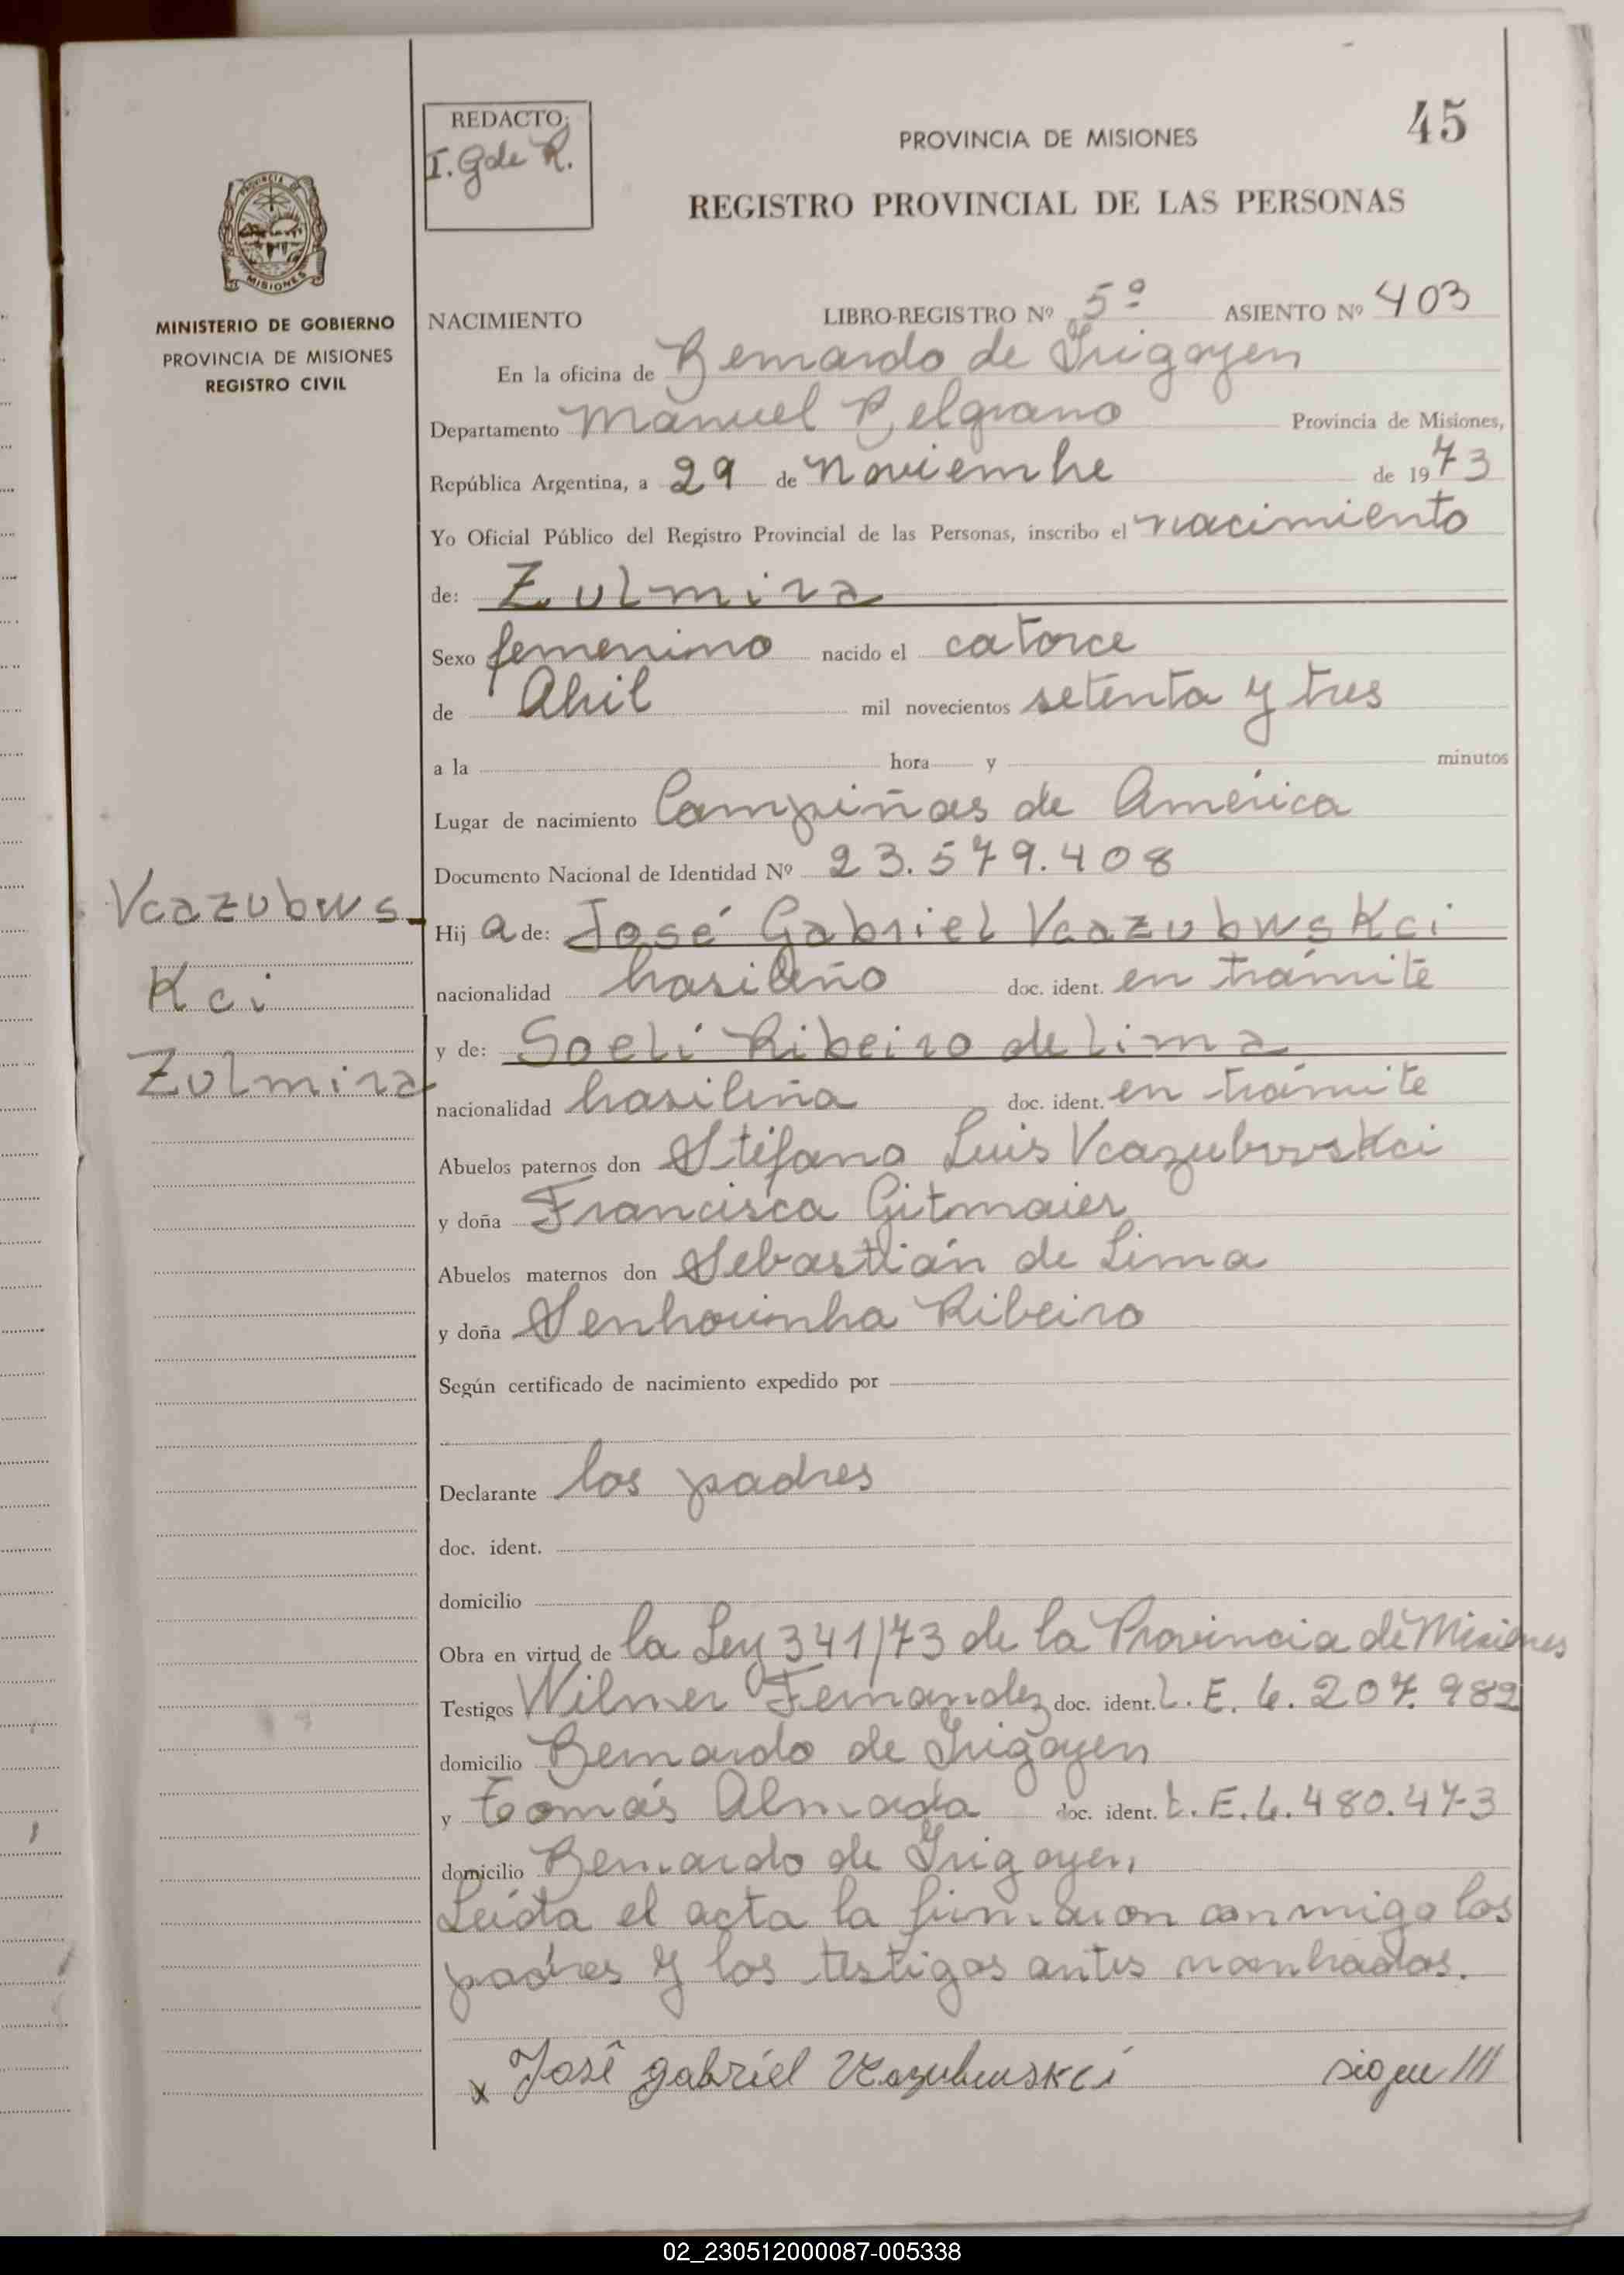 45
REDACTO:
I. G de R.
PROVINCIA DE MISIONES
REGISTRO PROVINCIAL DE LAS PERSONAS
PROVINCIA DE
MISIONES
MINISTERIO DE GOBIERNO
PROVINCIA DE MISIONES
REGISTRO CIVIL
NACIMIENTO LIBRO-REGISTRO Nº 5º ASIENTO Nº 403
En la oficina de Bernardo de Irigoyen
Departamento Manuel Belgrano Provincia de Misiones,
República Argentina, a 29 de Noviembre de 1973
Yo Oficial Público del Registro Provincial de las Personas, inscribo el nacimiento
de: Zulmira
Sexo femenino nacido el catorce
de Abril mil novecientos setenta y tres
a la hora y minutos
Lugar de nacimiento Campiñas de América
Documento Nacional de Identidad Nº 23.579.408
Vcazubws-
Kci
Zulmira
Hij a de: José Gabriel Vcazubwskci
nacionalidad brasileño doc. ident. en trámite
y de: Soelí Ribeiro de Lima
nacionalidad brasileña doc. ident. en trámite
Abuelos paternos don Stéfano Luis Vcazubwskci
y doña Francisca Gitmaier
Abuelos maternos don Sebastián de Lima
y doña Senhorinha Ribeiro
Según certificado de nacimiento expedido por
Declarante los padres
doc. ident.
domicilio
Obra en virtud de la Ley 341/73 de la Provincia de Misiones
Testigos Wilmer Fernandez doc. ident. L.E. 6.207.982
domicilio Bernardo de Irigoyen
y Tomás Almada doc. ident. L.E. 6.480.473
domicilio Bernardo de Irigoyen,
Leída el acta la firmaron conmigo los
padres y los testigos antes nombrados.
x José gabriel Vcazubwskci sigue///
02_230512000087-005338